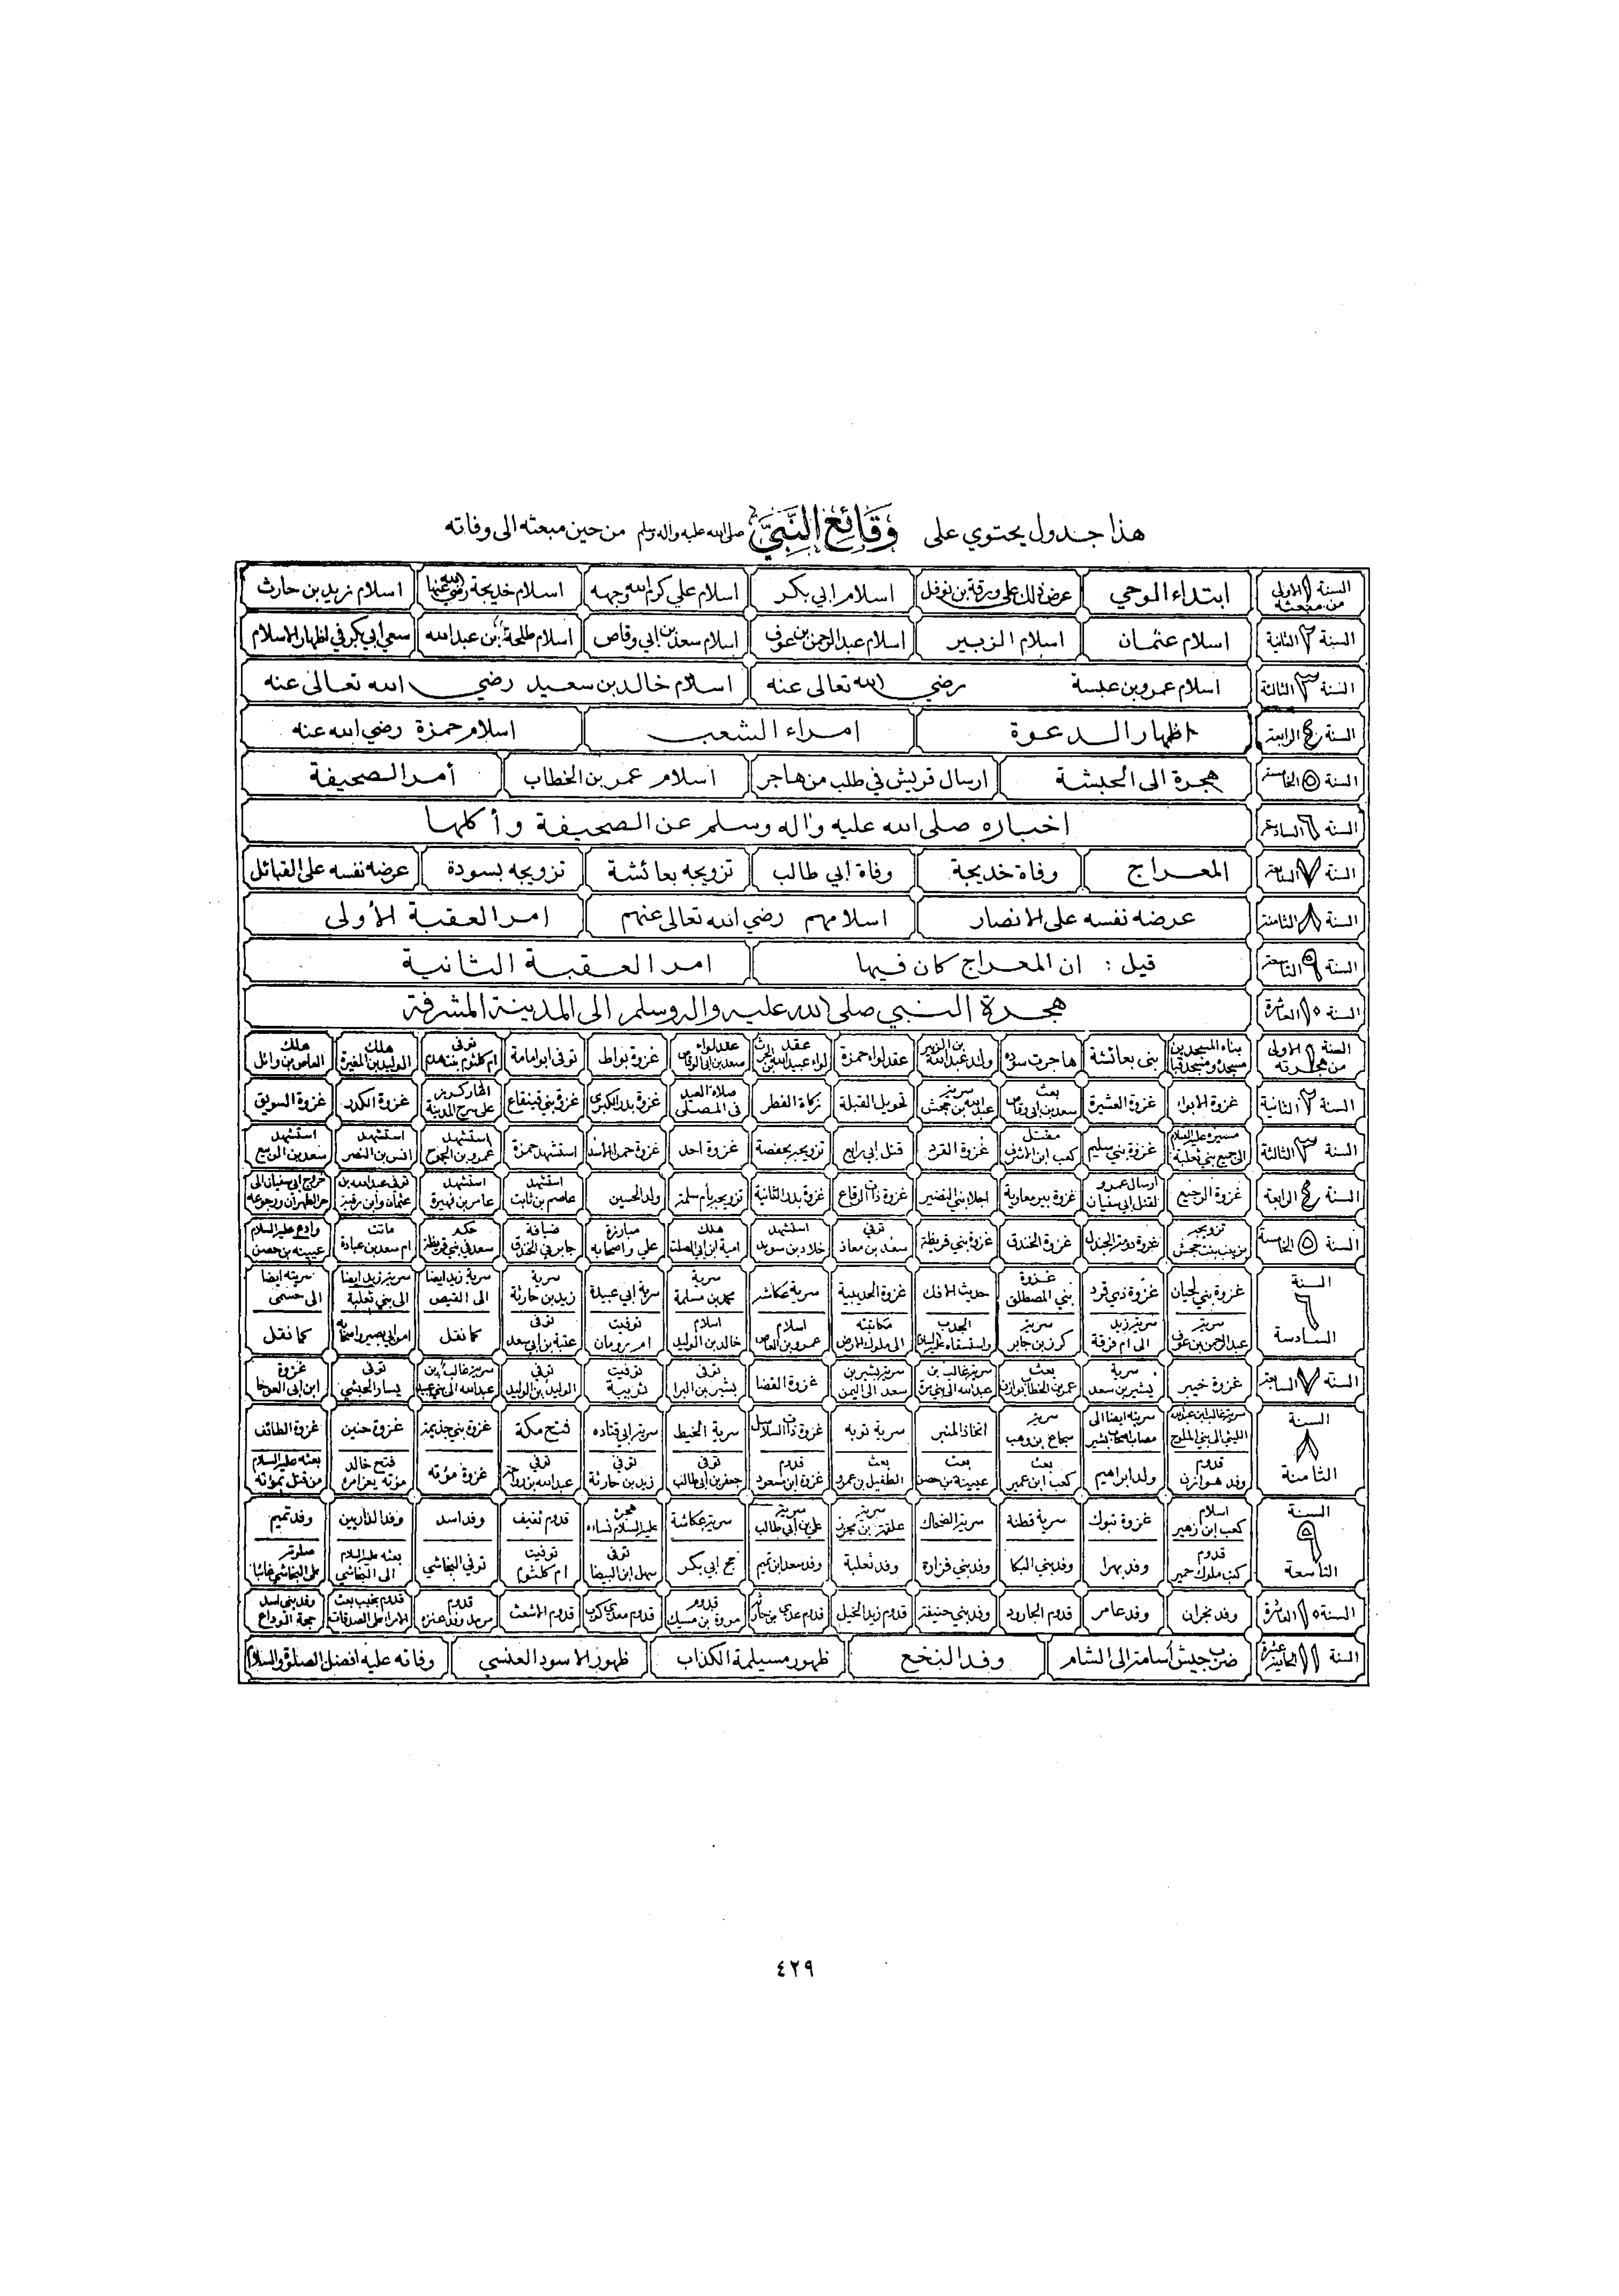 هذا جدول يحتوي على وَقَائِعِ النَّبِيِّ صلى الله عليه واله وسلم من حين مبعثه الى وفاته
السنة ١ الاولى من مبعثه ابتداء الوحي عرض ذلك على ورقة بن نوفل اسلام ابي بكر اسلام علي كرم الله وجهه اسلام خديجة رضي الله عنها اسلام زيد بن حارث
السنة ٢ الثانية اسلام عثمان اسلام الزبير اسلام عبد الرحمن بن عوف اسلام سعد بن ابي وقاص اسلام طلحة بن عبد الله سعي ابي بكر في اظهار الاسلام
السنة ٣ الثالثة اسلام عمرو بن عبسة رضي الله تعالى عنه اسلام خالد بن سعيد رضي الله تعالى عنه
السنة ٤ الرابعة اظهار الدعوة امراء الشعب اسلام حمزة رضي الله عنه
السنة ٥ الخامسة هجرة الى الحبشة ارسال قريش في طلب من هاجر اسلام عمر بن الخطاب أمر الصحيفة
السنة ٦ السادسة اخباره صلى الله عليه واله وسلم عن الصحيفة وأكلها
السنة ٧ السابعة المعراج وفاة خديجة وفاة ابي طالب تزويجه بعائشة تزويجه بسودة عرضه نفسه على القبائل
السنة ٨ الثامنة عرضه نفسه على الانصار اسلامهم رضي الله تعالى عنهم امر العقبة الأولى
السنة ٩ التاسعة قيل : ان المعراج كان فيها امر العقبة الثانية
السنة ١٠ العاشرة هجرة النبي صلى الله عليه واله وسلم الى المدينة المشرفة
السنة ١ الاولى من هجرته بناء المسجدين مسجده ومسجد قبا بنى بعائشة هاجرت سودة ولد عبد الله بن الزبير عقد لواء حمزة عقد لواء عبيد الله بن الحرث عقد لواء سعد بن ابى الوقاص غزوة بواط توفى ابو امامة توفى ام كلثوم بنت هدم هلك الوليد بن المغيرة هلك العاص بن وائل
السنة ٢ الثانية غزوة الابواء غزوة العشيرة بعث سعد بن ابي وقاص سرية عبد الله بن جحش تحويل القبلة زكاة الفطر صلاة العيد في المصلى غزوة بدر الكبرى غزوة بني قينقاع اغار كرز على سرح المدينة غزوة الكدر غزوة السويق
السنة ٣ الثالثة مسيره عليه السلام الى جميع بني ثعلبة غزوة بني سليم مقتل كعب ابن الاشرف غزوة القرد قتل ابي رافع تزويجه بحفصة غزوة احد غزوة حمراء الاسد استشهد حمزة استشهد عمرو بن الجموح استشهد انس بن النضر استشهد سعد بن الربيع
السنة ٤ الرابعة غزوة الرجيع ارسال عمرو لقتل ابي سفيان غزوة بير معاوية اجلا بني النضير غزوة ذات الرقاع غزوة بدر الثانية تزويجه بأم سلمة ولد الحسين استشهد عاصم بن ثابت استشهد عامر بن فهيرة توفى عبد الله بن عثمان وابن رقية خروج ابي سفيان الى مر الظهران ورجوعه
السنة ٥ الخامسة تزويجه بزينب بنت جحش غزوة دومة الجندل غزوة الخندق غزوة بني قريظة توفي سعد بن معاذ استشهد خلاد بن سويد هلك امية ابن ابي الصلت مبارزة علي واصحابه ضيافة جابر في الخندق حكم سعد في بني قريظة ماتت ام سعد بن عبادة وادع عليه السلام عيينه بن حصن
السنة ٦ السادسة غزوة بني لحيان غزوة ذي قرد غزوة بني المصطلق حديث الافك غزوة الحديبية سرية عكاشه سرية محمد بن مسلمة سرية ابي عبيدة سرية زيد بن حارثة سرية زيد ايضا الى العيص سرية زيد ايضا الى بني ثعلبة سريته ايضا الى حسمى
سرية عبد الرحمن بن عوف سرية زيد الى ام قرفة سرية كرز بن جابر الجدب واستسقاه عليه السلام مكاتبته الى ملوك الارض اسلام عمرو بن العاص اسلام خالد بن الوليد توفيت ام رومان توفى عتبة بن ابي سعد كما نقل امر ابي بصير واصحابه كما نقل
السنة ٧ السابعة غزوة خيبر سرية بشير بن سعد بعث عمر بن الخطاب هوازن سرية غالب بن عبد الله الى بني مرة سرية بشير بن سعد الى اليمن غزوة القضا توفى بشير بن البرا توفيت ثويبة توفي الوليد بن الوليد سرية غالب ابن عبد الله الى بني عبد توفى يسار الحبشي غزوة ابن ابي العوجا
السنة ٨ الثامنة سرية غالب ابن عبد الله الليثي الى بني الملوح سريته ايضا الى مصاب اصحاب بشير سرية شجاع بن وهب اتخاذ المنبر سرية تربه غزوة ذات السلاسل سرية الخبط سرية ابي قتاده فتح مكة غزوة بني جذيمة غزوة حنين غزوة الطائف
قدوم وفد هوازن ولد ابراهيم بعث كعب ابن عمير بعث عيينة بن حصن بعث الطفيل بن عمرو قدوم غزوة ابن مسعود توفى جعفر بن ابي طالب توفى زيد بن حارثة توفى عبد الله بن رواحة غزوة مؤته فتح خالد مؤته بعزامرو بعثه عليه السلام من قتل بمؤته
السنة ٩ التاسعة اسلام كعب ابن زهير غزوة تبوك سرية قطنة سرية الضحاك سرية علقمة بن مجزز سرية علي بن ابي طالب سرية عكاشة هجره عليه السلام نساءه قدوم ثقيف وفد اسد وفد الداريين وفد تميم
قدوم كتب ملوك حمير وفد بهرا وفد بني البكا وفد بني فزارة وفد ثعلبة وفد سعد ابن تميم حج ابي بكر توفى سهل ابن البيضا توفيت ام كلثوم توفي النجاشي بعثه عليه السلام الى النجاشي صلوته على النجاشي غائبا
السنة ١٠ العاشرة وفد نجران وفد عامر قدوم الجارود وفد بني حنيفة قدوم زيد الخيل قدوم عدي بن حاتم قدوم مروة بن مسيك قدوم معدي كرب قدوم الاشعث قدوم وفد عنزه الامراء على الصدقات وفد بني اسد حجة الوداع
السنة ١١ الحادية عشرة ضرب جيش أسامة الى الشام وفد النخع ظهور مسيلمة الكذاب ظهور الاسود العنسي وفاته عليه افضل الصلوة والسلام
٤٢٩